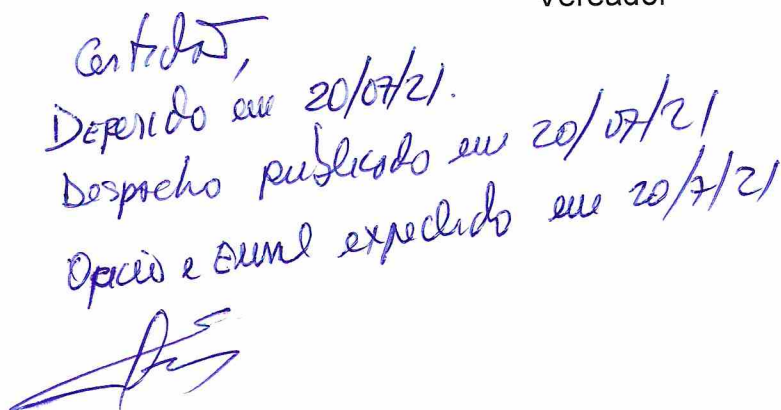 Vereador
Certidão,
Deferido em 20/07/21.
Despacho publicado em 20/07/21
Ofício e Email expedido em 20/7/21